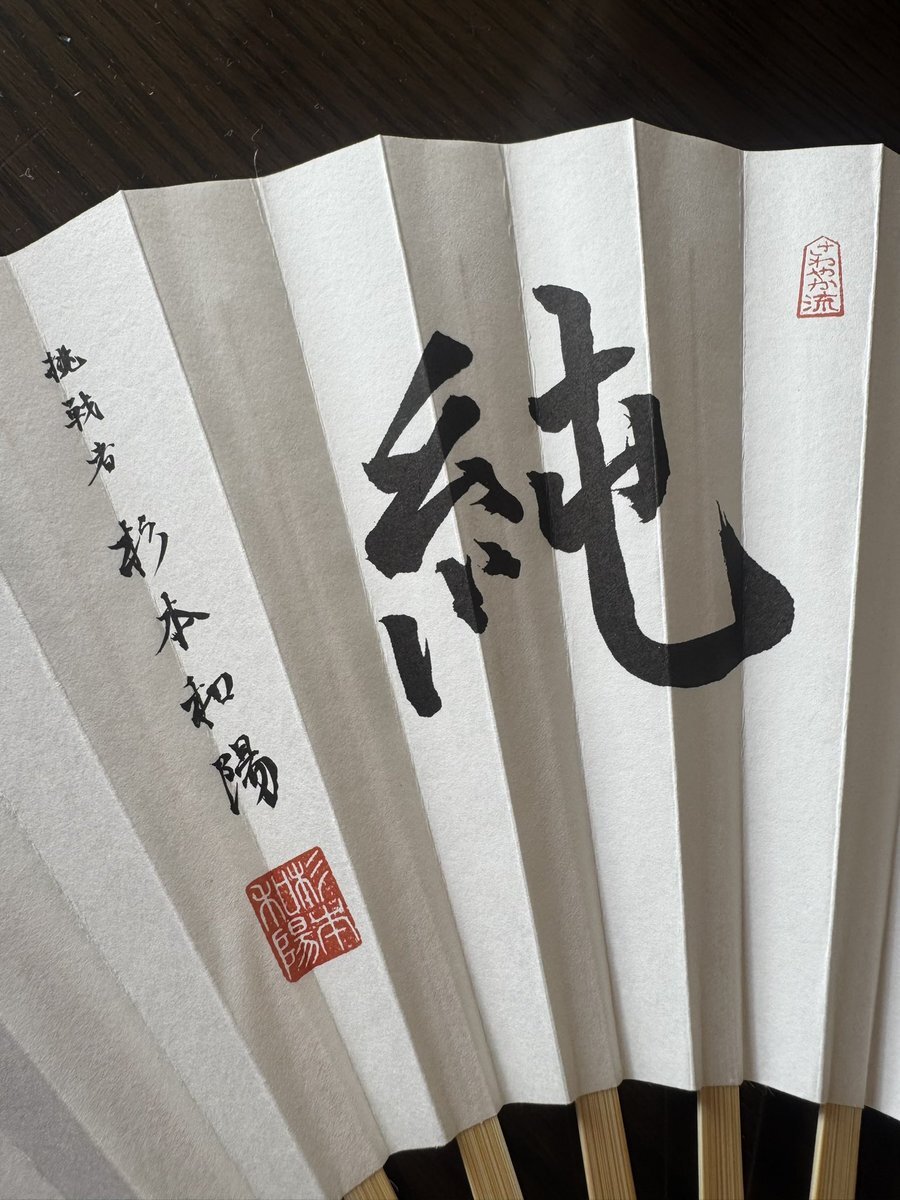 さわやか流
純
挑戦者 杉本和陽
杉本
和陽